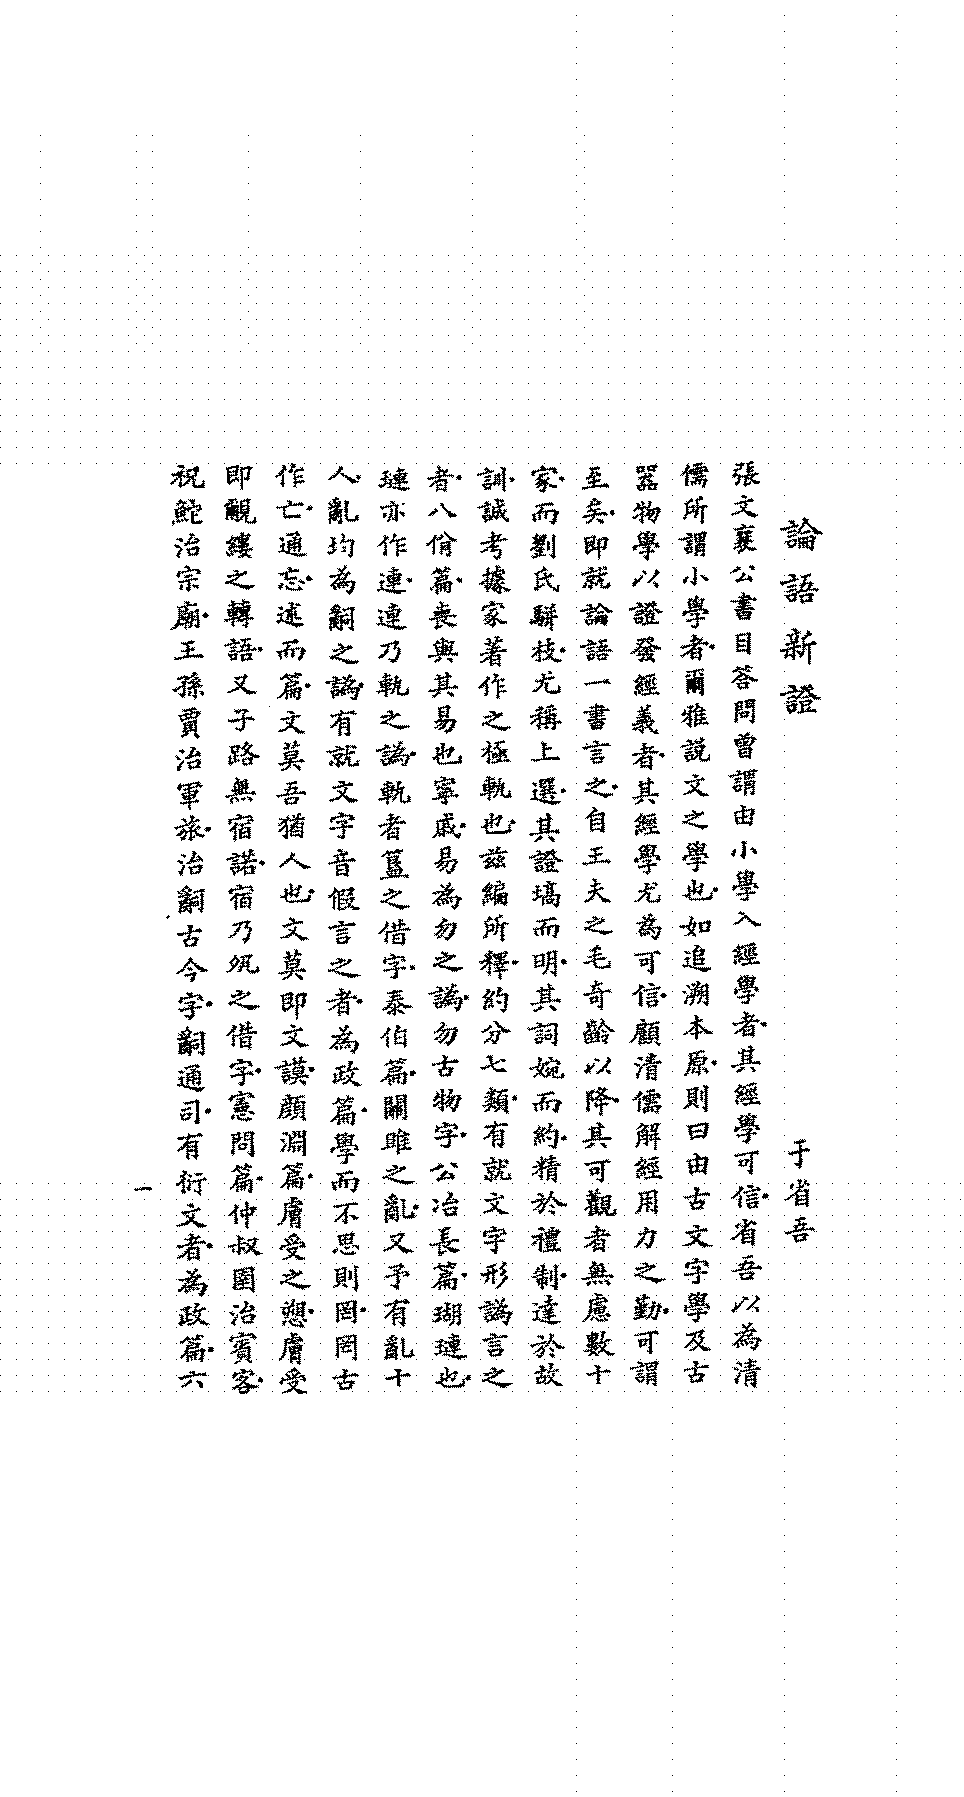 論語新證
于省吾
張文襄公書目答問曾謂由小學入經學者·其經學可信·省吾以為清
儒所謂小學者·爾雅說文之學也·如追溯本原·則曰由古文字學及古
器物學以證發經義者·其經學尤為可信·顧清儒解經用力之勤·可謂
至矣·即就論語一書言之·自王夫之毛奇齡以降·其可觀者無慮數十
家·而劉氏駢枝·尤稱上選·其證塙而明·其詞婉而約·精於禮制·達於故
訓·誠考據家著作之極軌也·茲編所釋·約分七類·有就文字形譌言之
者·八佾篇·喪與其易也寧戚·易為勿之譌·勿古物字·公冶長篇·瑚璉也·
璉亦作連·連乃軌之譌·軌者簋之借字·泰伯篇·關雎之亂·又予有亂十
人·亂均為嗣之譌·有就文字音假言之者·為政篇·學而不思則罔·罔古
作亡·通忘·述而篇·文莫吾猶人也·文莫即文謨·顏淵篇·膚受之愬·膚受
即覼縷之轉語·又子路無宿諾·宿乃夙之借字·憲問篇·仲叔圉治賓客·
祝鮀治宗廟·王孫賈治軍旅·治嗣古今字·嗣通司·有衍文者·為政篇·六
一